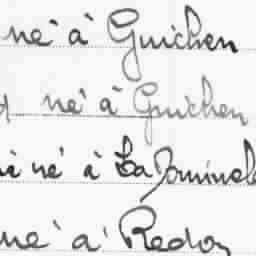 né à Guichen
né à Guichen
né à La Dominel
né à Redon